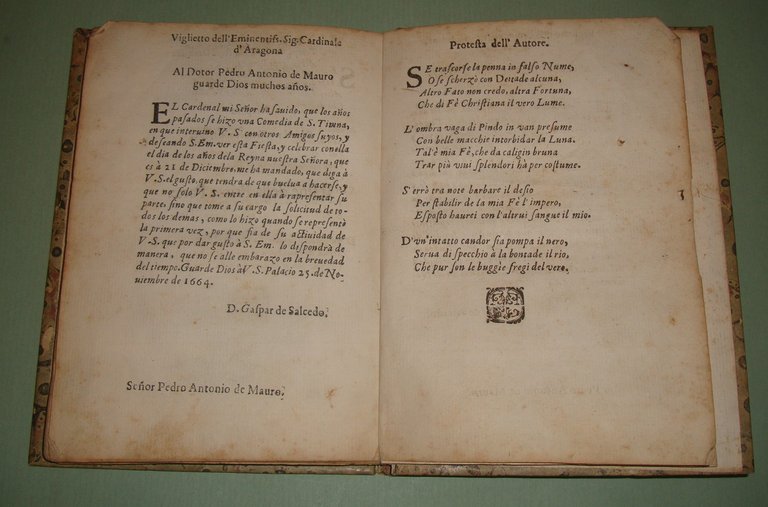 Viglietto dell'Eminentiss. Sig. Cardinale
d'Aragona
Al Dotor Pedro Antonio de Mauro
guarde Dios muchos años.
EL Cardenal mi Señor ha sauido, que los años
pasados se hizo vna Comedia de S.
en que interuino V. S con otros Amigos suyos, y
deseando S. Em. ver esta Fiesta, y celebrar con ella
el dia de los años dela Reyna nuestra Señora, que
es à 21 de Diciembre. me ha mandado, que diga à
V. S. el gusto, que tendra de que buelua a hacerse, y
que no solo V. S. entre en ella à rapresentar su
parte, sino que tome a su cargo la solicitud de to-
dos los demas, como lo hizo quando se represente
la primera vez, por que fia de su actiuidad de
V. S. que por dar gusto à S. Em. lo dispondrà de
manera, que no se alle embarazo en la breuedad
del tiempo. Guarde Dios à V. S. Palacio 25. de No-
uiembre de 1664.
D. Gaspar de Salcedo.
Señor Pedro Antonio de Mauro.
Protesta dell'Autore.
SE trascorse la penna in falso Nume,
O se scherzò con Deitade alcuna,
Altro Fato non credo, altra Fortuna,
Che di Fè Christiana il vero Lume.
L'ombra vaga di Pindo in van presume
Con belle macchie intorbidar la Luna.
Tal'è mia Fè, che da caligin bruna
Trar più viui splendori hà per costume.
S'errò tra note barbare il desio
Per stabilir de la mia Fè l'impero,
Esposto haurei con l'altrui sangue il mio.
D'vn'intatto candor sia pompa il nero,
Serua di specchio à la bontade il rio,
Che pur son le buggie fregi del vero.